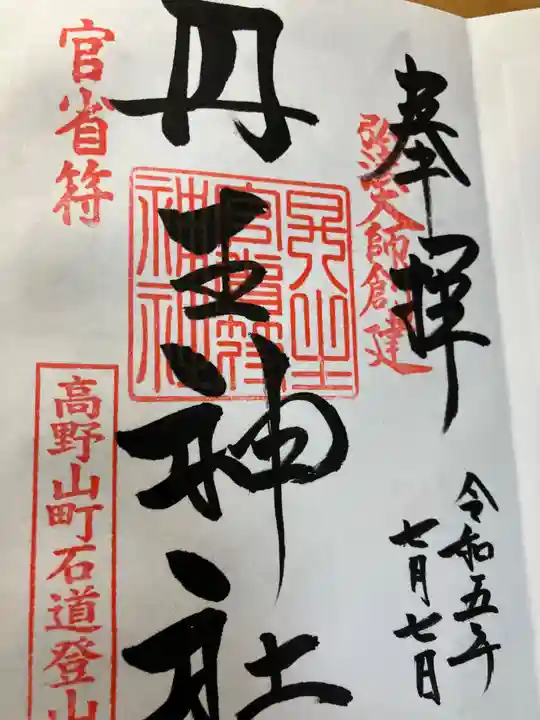 奉拝
弘法大師創建
令和五年
七月七日
丹生神社
丹生
官省符
神社
官省符
高野山町石道登山